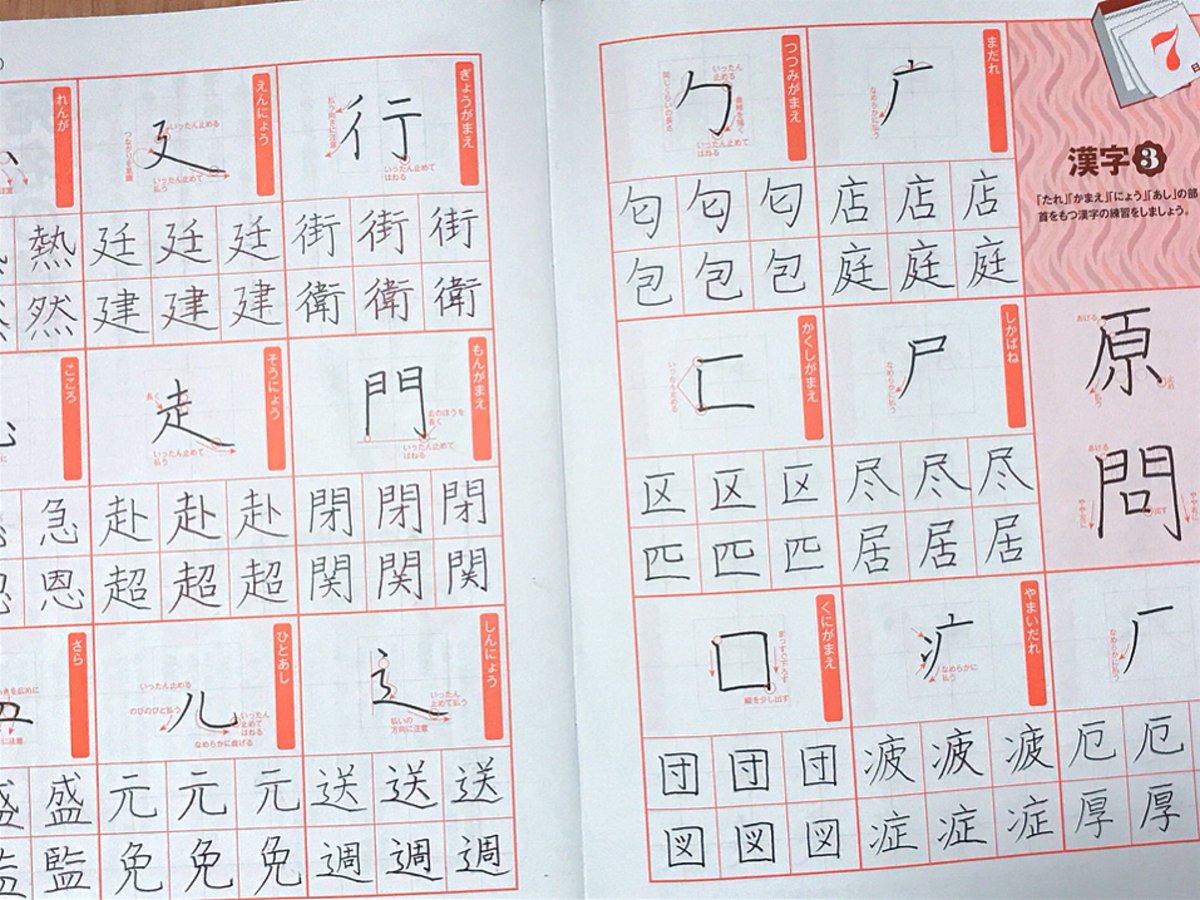 7日
漢字3
「たれ」「かまえ」「にょう」「あし」の部
首をもつ漢字の練習をしましょう。
あげる
原
払う
止め
あげる
問
出す
まだれ
广
なめらかに払う
店 店 店
庭 庭 庭
つつみがまえ
勹
いったん
止める
同じくらいの長さ
曲線を描く
いったん止めて
はねる
匂 匂 匂
包 包 包
しかばね
尸
なめらかに払う
尽 尽 尽
居 居 居
かくしがまえ
匸
いったん止める
区 区 区
匹 匹 匹
厂
なめらかに払う
厄 厄
厚 厚
やまいだれ
疒
なめらかに
払う
疲 疲 疲
症 症 症
くにがまえ
囗
まっすぐ下ろす
縦を少し出す
団 団 団
図 図 図
ぎょうがまえ
行
払う向きに注意
いったん止めて
はねる
街 街 街
衛 衛 衛
えんにょう
廴
いったん止める
つながりを意識
いったん止めて
払う
廷 廷 廷
建 建 建
れんが
熱
然 然
もんがまえ
門
右のほうを
長く
いったん止めて
はねる
閉 閉 閉
関 関 関
そうにょう
走
長く
いったん止めて
払う
赴 赴 赴
超 超 超
こころ
急
恩 恩
しんにょう
辶
いったん
止めて払う
払いの
方向に注意
送 送 送
週 週 週
ひとあし
儿
いったん止める
のびのびと払う
いったん
止めて
はねる
なめらかに曲げる
元 元 元
免 免 免
さら
に注意
盛 盛
監 監